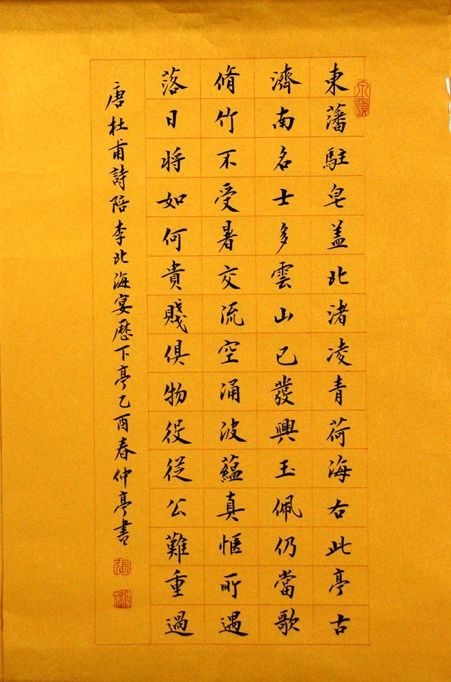 東藩駐皂盖北渚凌青荷海右此亭古
濟南名士多雲山已發興玉佩仍當歌
脩竹不受暑交流空涌波蘊真愜所遇
落日将如何貴賤俱物役從公難重過
唐杜甫詩陪李北海宴歷下亭乙酉春仲亭書